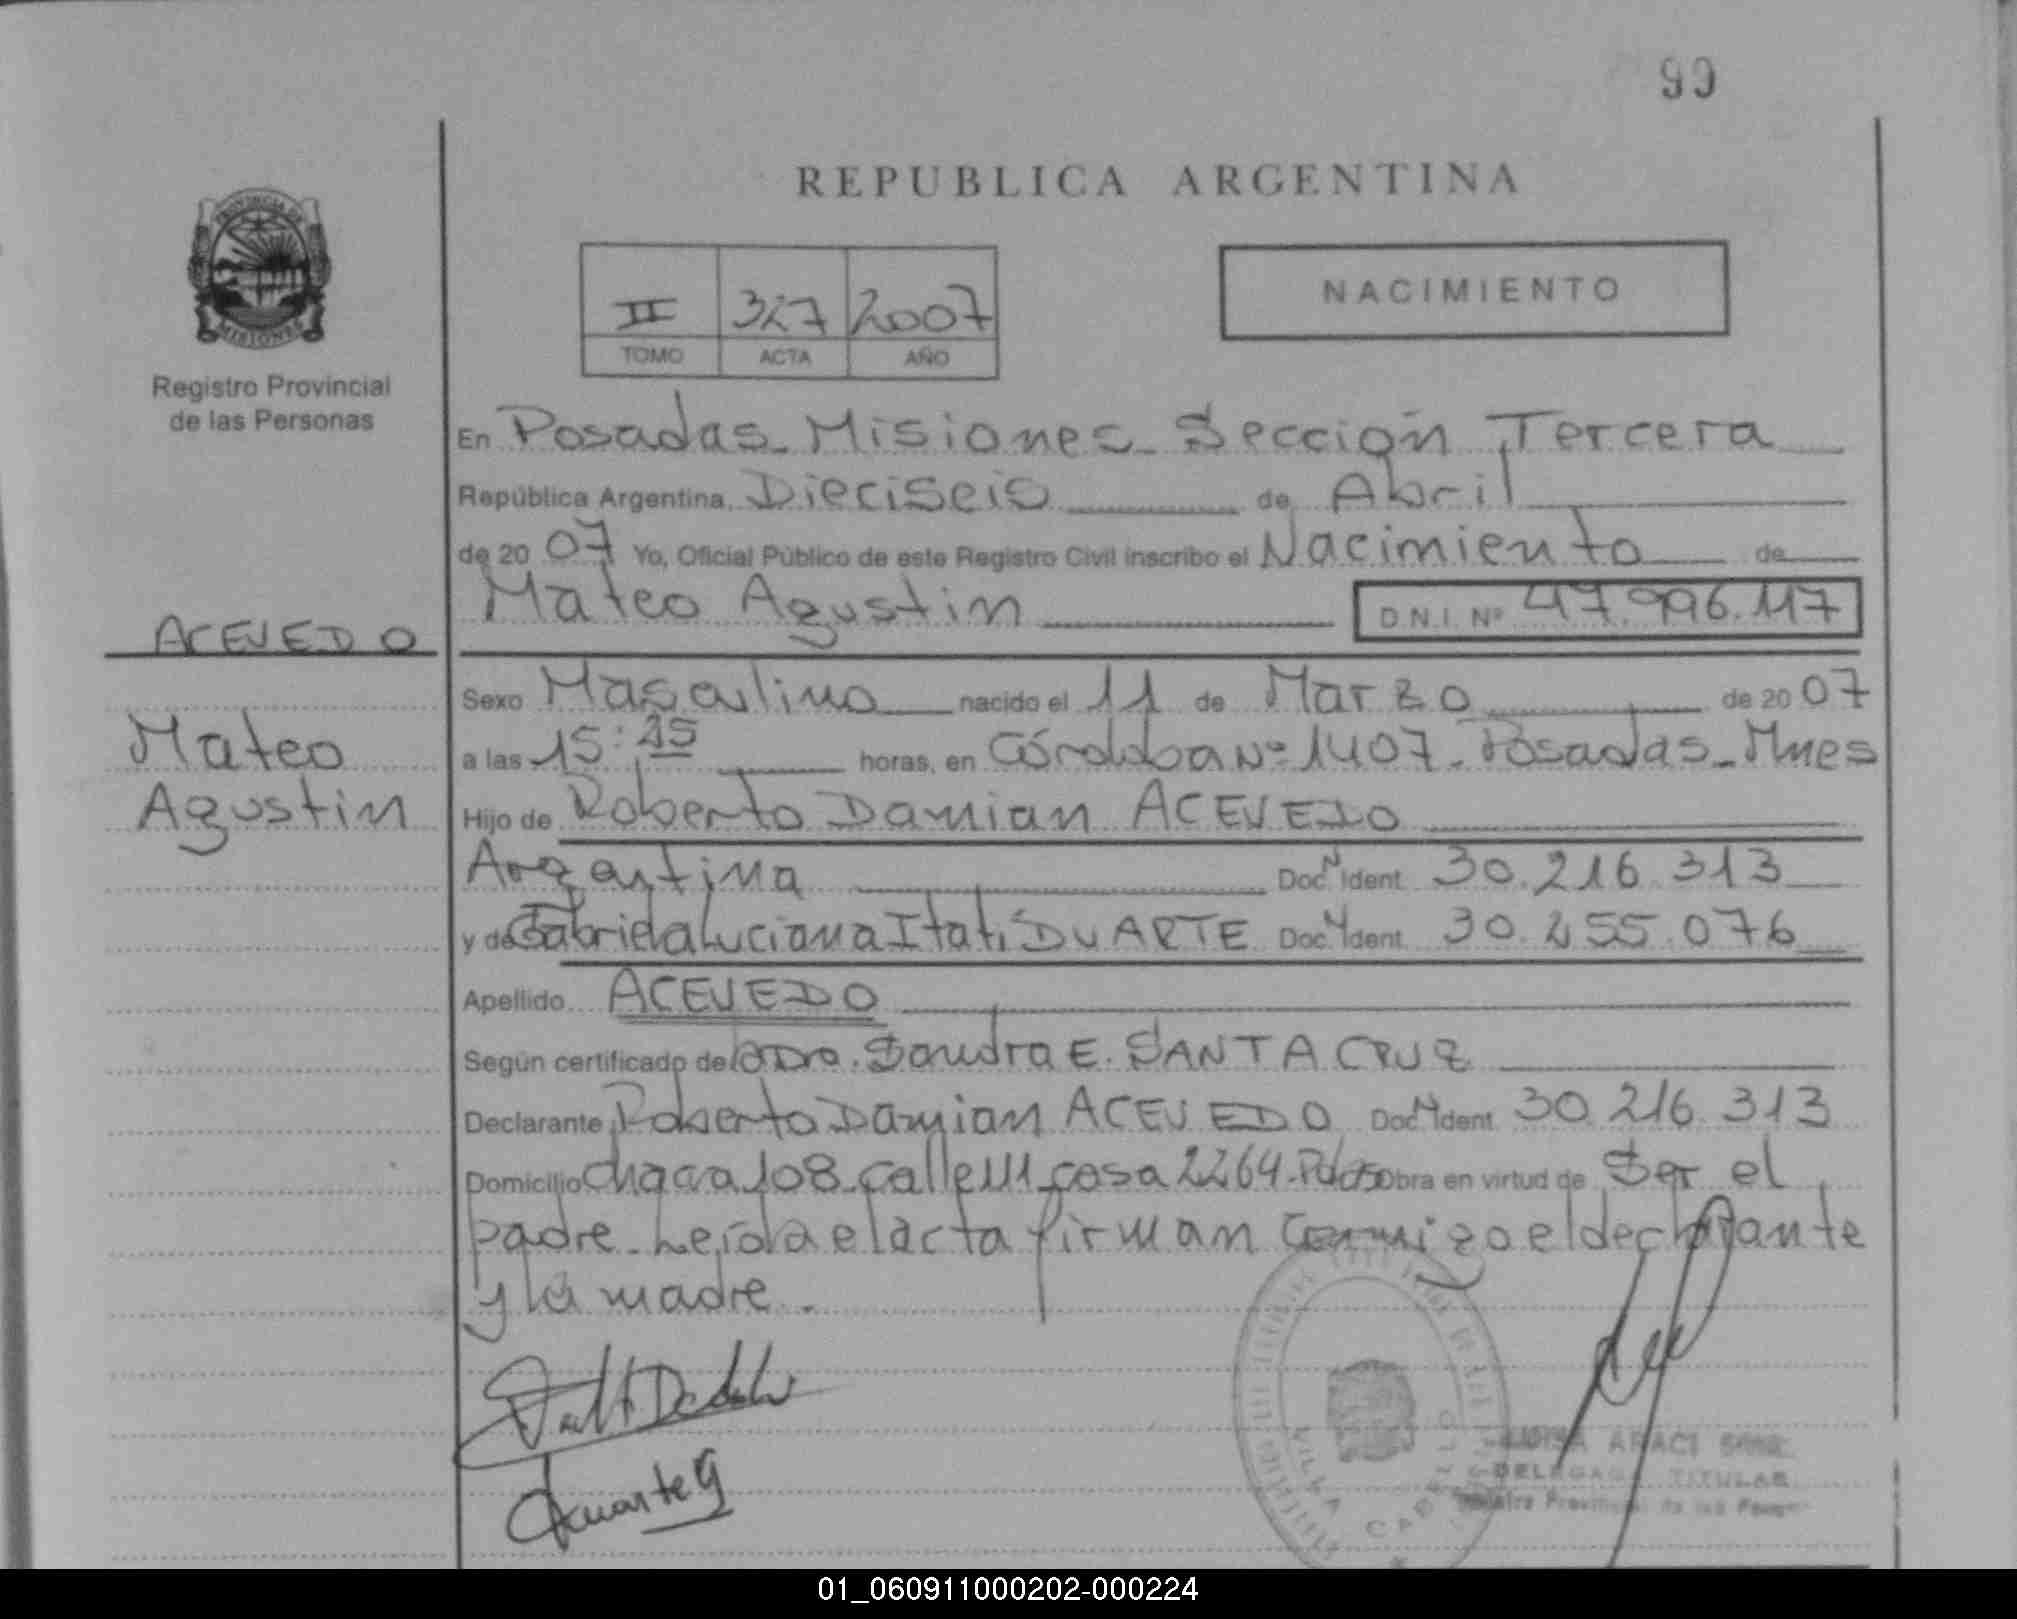 99
REPUBLICA ARGENTINA
PROVINCIA DE
MISIONES
II 327 2007
TOMO ACTA AÑO
NACIMIENTO
Registro Provincial
de las Personas
En Posadas - Misiones - Sección Tercera
República Argentina, Dieciseis de Abril
de 20 07 Yo, Oficial Público de este Registro Civil inscribo el Nacimiento de
Mateo Agustin D.N.I. Nº 47.996.117
ACEVEDO
Mateo
Agustin
Sexo Masculino nacido el 11 de Marzo de 20 07
a las 15: horas, en Córdoba Nº 1407 - Posadas - Mnes
Hijo de Roberto Damian ACEVEDO
Argentina Doc. N Ident. 30.216.313
y de Gabriela Luciana Itati DUARTE Doc. N Ident. 30.255.076
Apellido ACEVEDO
Según certificado de la Dra. Sandra E. SANTA CRUZ
Declarante Roberto Damian ACEVEDO Doc. N Ident. 30.216.313
Domicilio Chacra 108 - calle 111 casa 2264 - Pdas obra en virtud de Ser el
padre. Leída el acta firman conmigo el declarante
y la madre.
Duarte G
VILLA CABELLO
ARACI
DELEGADA TITULAR
01_060911000202-000224